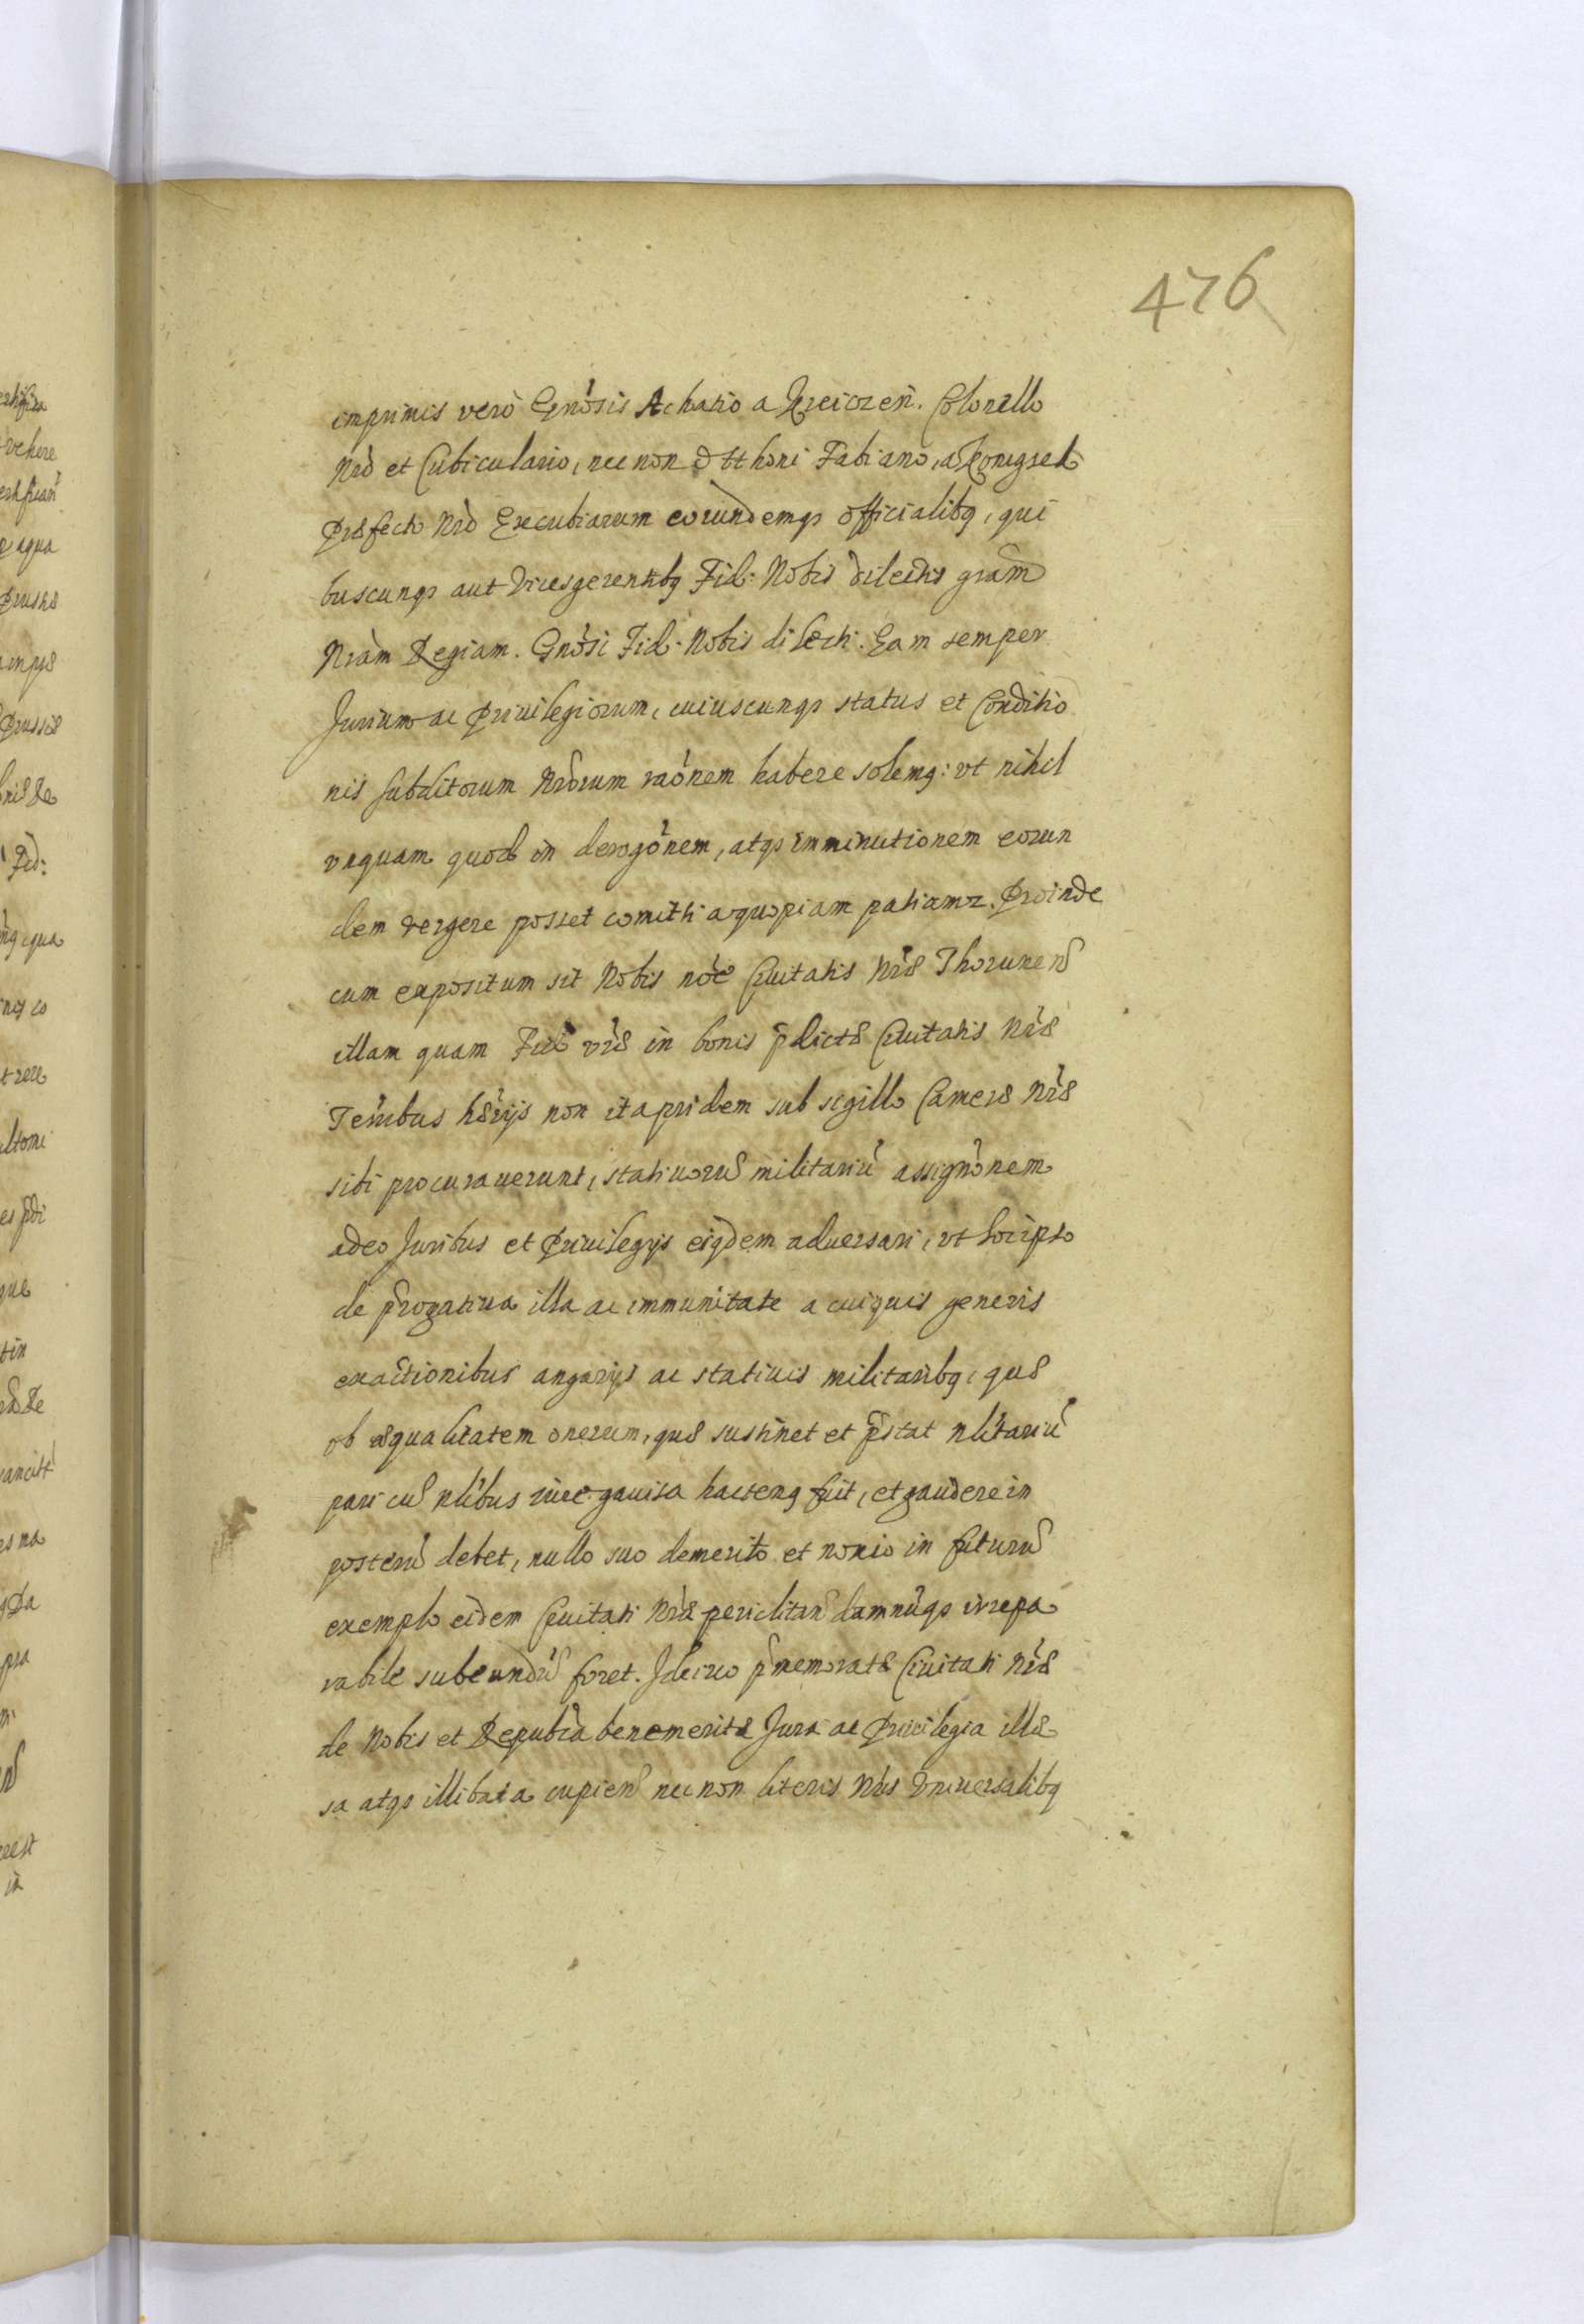 476
imprimis verò Gnõsis Achatio a Kreiczeñ. Colonello
Nrò et Cubiculario, nec non Otthoni Fabiano, a Konigsek
Præfecto Nrò Excubiarum eorundemq₃ officialibq, qui
buscunq₃ aut Vicesgerentibq Fid: Nobis dilectis grãm
Nrãm Regiam. Gnõsi Fid. Nobis dilecti. Eam semper
Jurium ac Priuilegiorum, cuiuscunq₃ status et Conditio
nis subditorum Nrõrum raõnem habere solemq: vt nihil
vnquam quod in derogõnem, atq₃ imminutionem eorun
dem vergere posset comitti a quopiam patiamr. Proinde
cum expositum sit Nobis nõe Ciuitatis Nræ Thorunen̄
illam quam Fid vræ in bonis p̄dictæ Ciuitatis Nræ
Terribus hærijs non ita pridem sub sigillo Cameræ Nræ
sibi procurauerunt, statiuorū militariū assignõnem
adeo Juribus et Priuilegijs eiqdem aduersari, vt hoc ip̄so
de p̄rogatiua illa ac immunitate a cuiquis generis
exactionibus angarijs ac statiuis militaribq, quæ
ob æqualitatem onerum, quæ sustinet et p̄stat nlitariū
pari cū nlibus iure gauisa hactenq fuit, et gaudere in
posterū debet, nullo suo demerito et noxio in futurū
exemplo eidem Ciuitati Nræ periclitan̄ damnūq₃ irrepa
rabile subeundū foret. Idcirco p̄memoratæ Ciuitati Nræ
de Nobis et Republã benemeritæ Jura ac Priuilegia illæ
sa atq₃ illibata cupien̄ nec non literis Nris Vniuersalibq